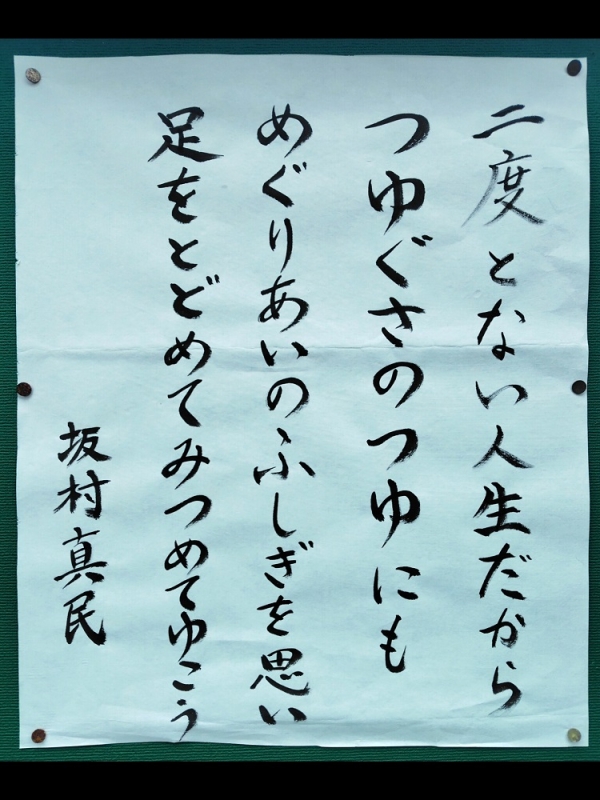 二度とない人生だから
つゆぐさのつゆにも
めぐりあいのふしぎを思い
足をとどめてみつめてゆこう
坂村真民